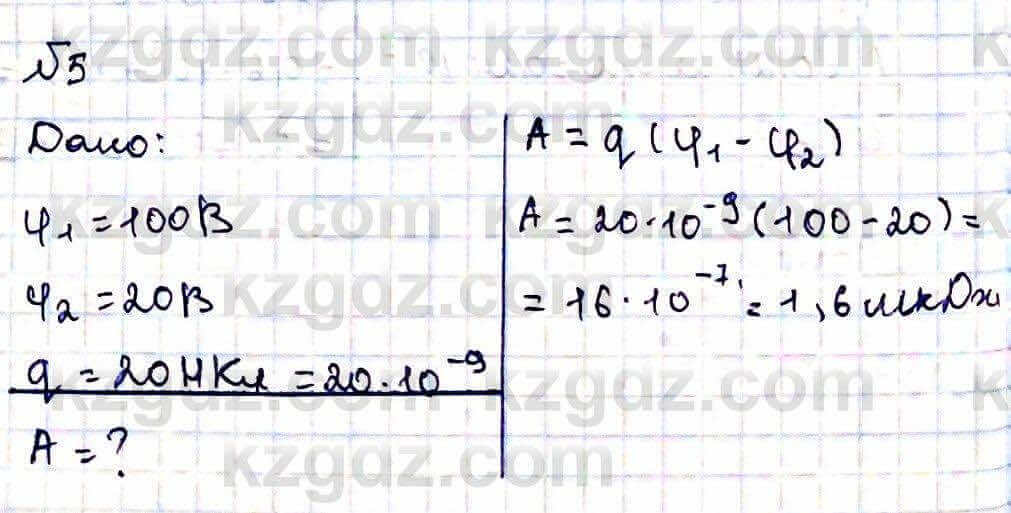 №5
Дано:
φ₁ = 100В
φ₂ = 20В
q = 20нКл = 20·10⁻⁹
A = ?
A = q (φ₁ - φ₂)
A = 20·10⁻⁹ (100 - 20) =
= 16·10⁻⁷ = 1,6 мкДж
kzgdz.com